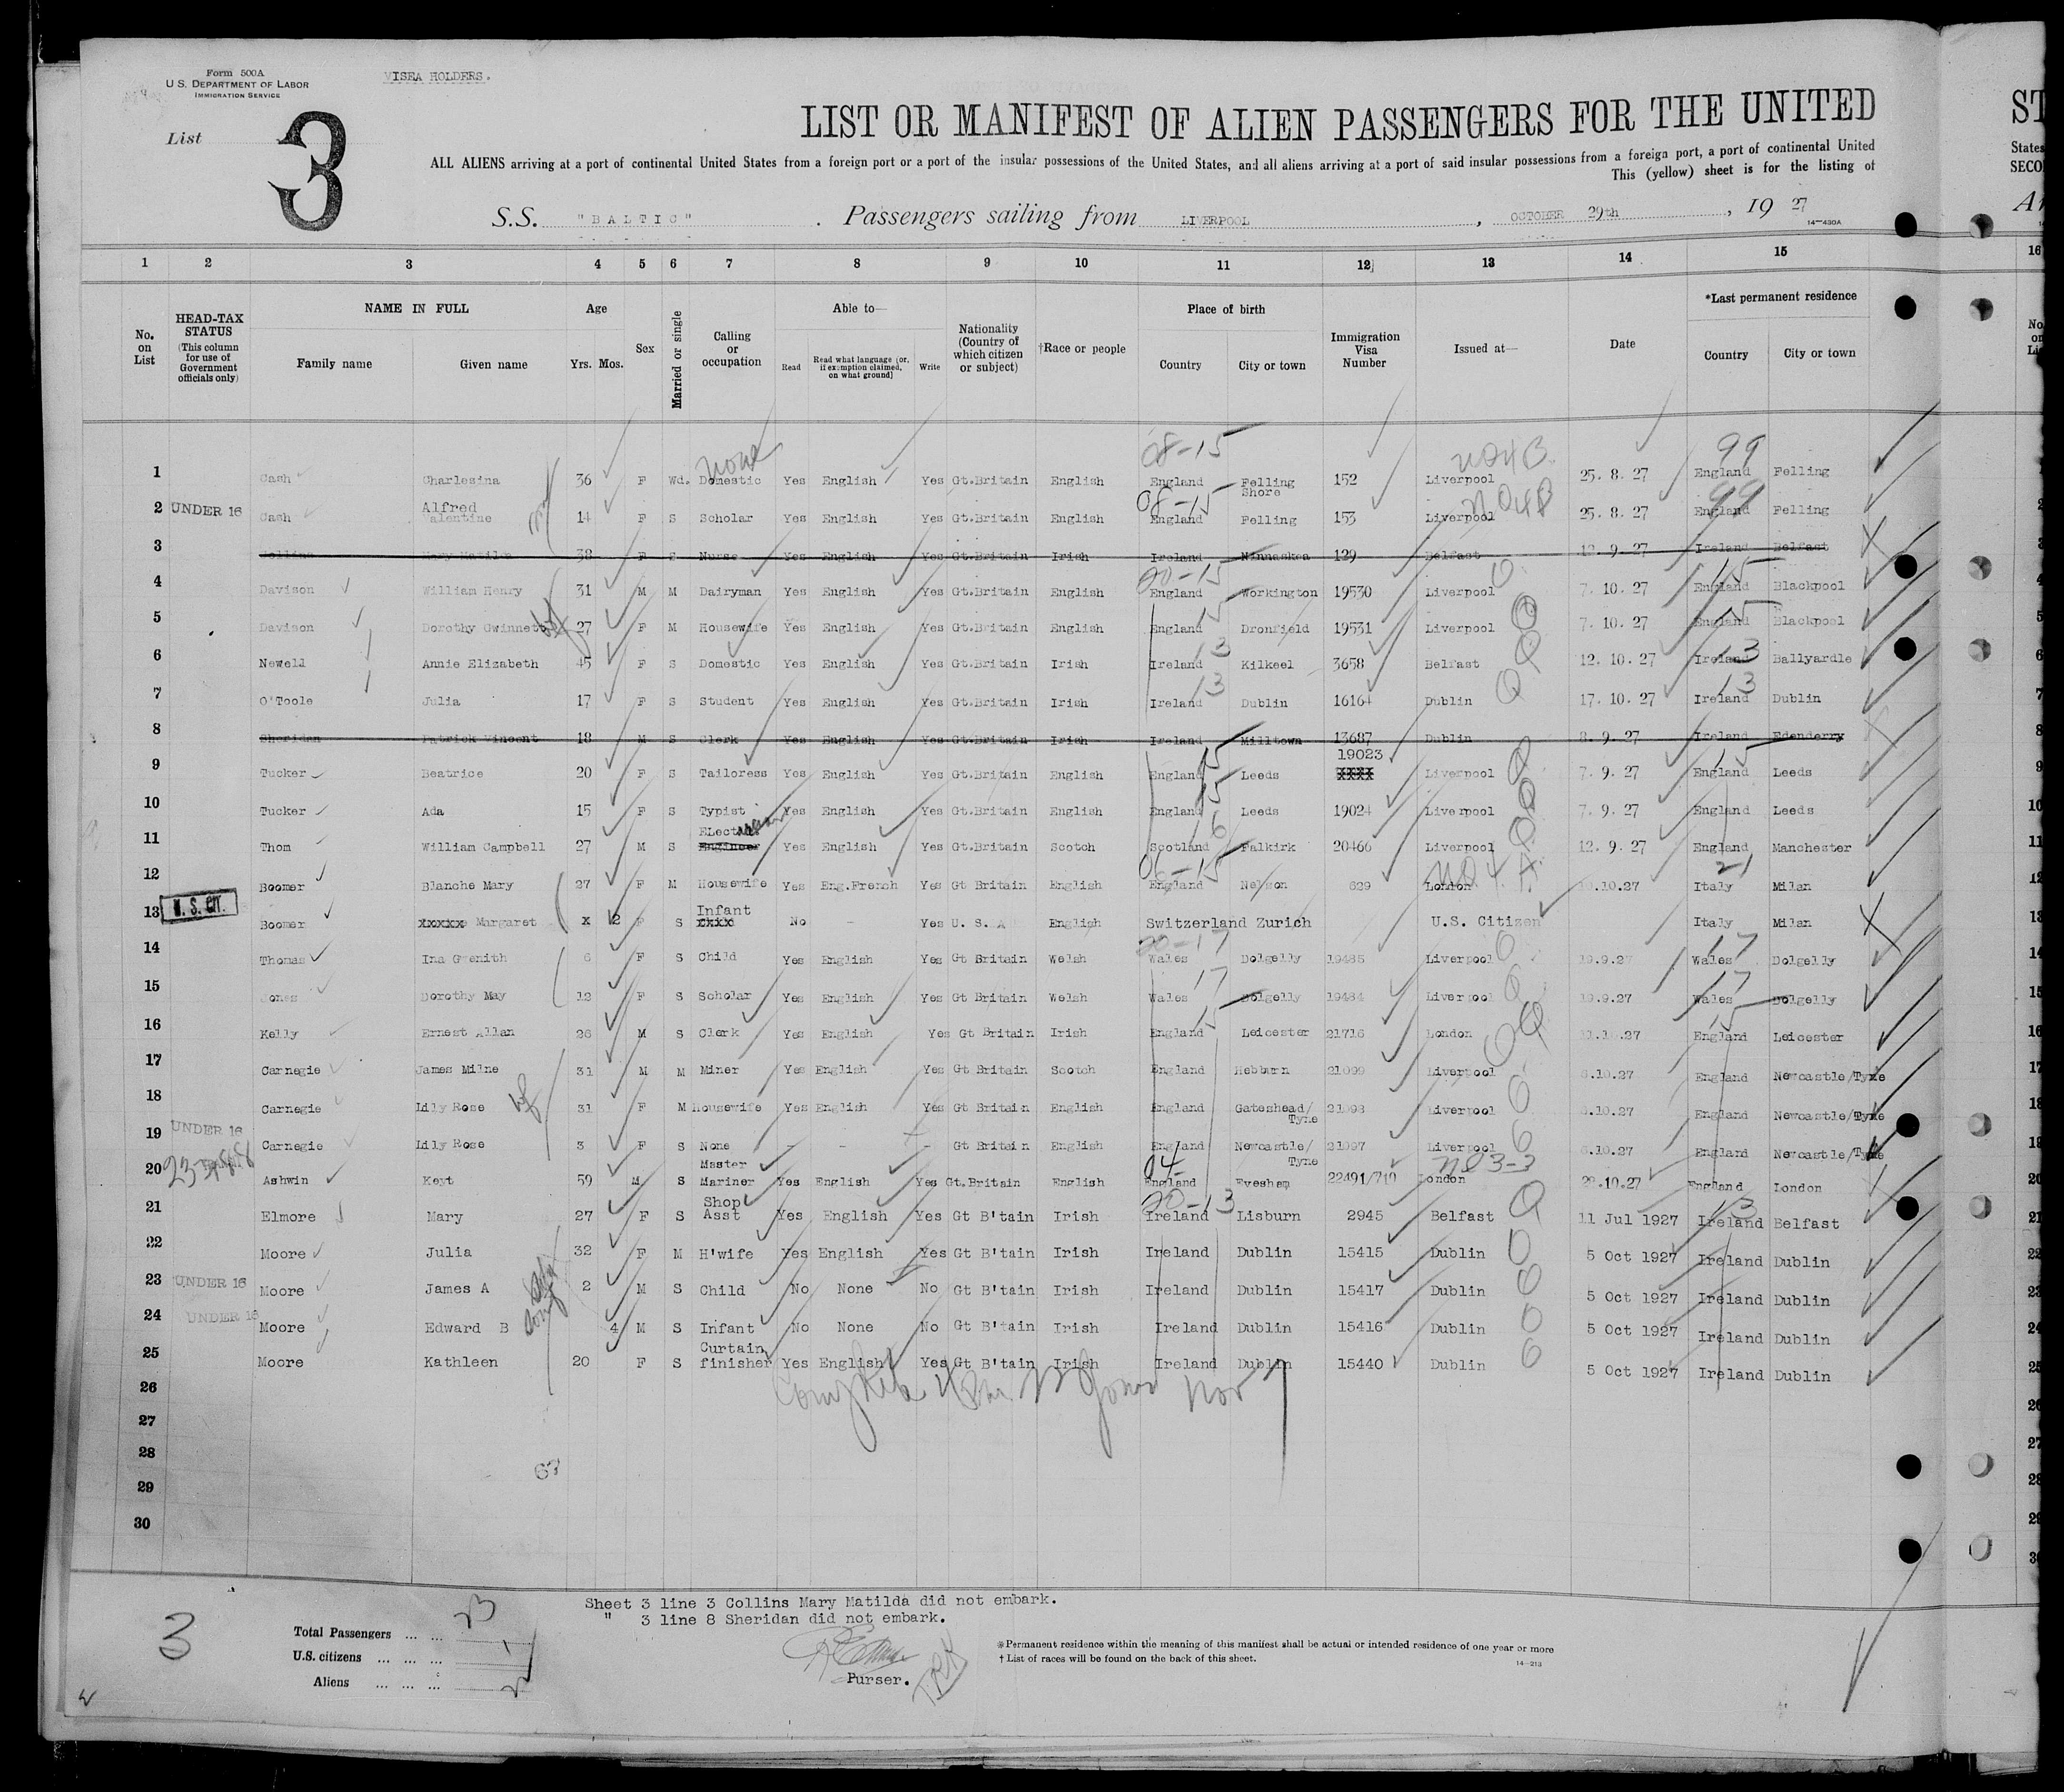 Form 500A
U.S. DEPARTMENT OF LABOR
IMMIGRATION SERVICE
VISEA HOLDERS.
List 3
LIST OR MANIFEST OF ALIEN PASSENGERS FOR THE UNITED
ST
ALL ALIENS arriving at a port of continental United States from a foreign port or a port of the insular possessions of the United States, and all aliens arriving at a port of said insular possessions from a foreign port, a port of continental United
States
This (yellow) sheet is for the listing of
SECO
S.S. "BALTIC" . Passengers sailing from LIVERPOOL, OCTOBER 29th, 19 27
14—430A
1 2 3 4 5 6 7 8 9 10 11 12 13 14 15 16
No. on List
HEAD-TAX STATUS (This column for use of Government officials only)
NAME IN FULL
Family name Given name
Age
Yrs. Mos.
Sex
Married or single
Calling or occupation
Able to—
Read Read what language (or, if exemption claimed, on what ground) Write
Nationality (Country of which citizen or subject)
†Race or people
Place of birth
Country City or town
Immigration Visa Number
Issued at—
Date
*Last permanent residence
Country City or town
08-15 99
1 Cash Charlesina 36 F Wd. none Domestic Yes English Yes Gt.Britain English England Felling Shore 152 Liverpool 25. 8. 27 England Felling
08-15 99
2 UNDER 16 Cash Alfred Valentine 14 F S Scholar Yes English Yes Gt.Britain English England Felling 153 Liverpool 25. 8. 27 England Felling
3 Collins Mary Matilda 38 F S Nurse Yes English Yes Gt.Britain Irish Ireland 129 Belfast 9. 27 Ireland Belfast
20-15 15
4 Davison William Henry 31 M M Dairyman Yes English Yes Gt.Britain English England Workington 19530 Liverpool 7. 10. 27 England Blackpool
15 15
5 Davison Dorothy Gwinnett 27 F M Housewife Yes English Yes Gt.Britain English England Dronfield 19531 Liverpool 7. 10. 27 England Blackpool
13 13
6 Newell Annie Elizabeth 45 F S Domestic Yes English Yes Gt.Britain Irish Ireland Kilkeel 3658 Belfast 12. 10. 27 Ireland Ballyardle
13 13
7 O'Toole Julia 17 F S Student Yes English Yes Gt.Britain Irish Ireland Dublin 16164 Dublin 17. 10. 27 Ireland Dublin
8 Sheridan Patrick Vincent 18 M S Clerk Yes English Yes Gt.Britain Irish Ireland Milltown 13687 Dublin 8. 9. 27 Ireland Edenderry
15 19023 15
9 Tucker Beatrice 20 F S Tailoress Yes English Yes Gt.Britain English England Leeds XXXX Liverpool 7. 9. 27 England Leeds
15
10 Tucker Ada 15 F S Typist Yes English Yes Gt.Britain English England Leeds 19024 Liverpool 7. 9. 27 England Leeds
16
11 Thom William Campbell 27 M S Engineer Yes English Yes Gt.Britain Scotch Scotland Falkirk 20466 Liverpool 12. 9. 27 England Manchester
06-15 21
12 Boomer Blanche Mary 27 F M Housewife Yes Eng.French Yes Gt Britain English England Nelson 629 London 10.27 Italy Milan
13 U.S. CIT. Boomer xxxxx Margaret x 2 F S Infant No - Yes U. S. A English Switzerland Zurich U.S. Citizen Italy Milan
20-17 17
14 Thomas Ina Gwenith 6 F S Child Yes English Yes Gt Britain Welsh Wales Dolgelly 19485 Liverpool 19.9.27 Wales Dolgelly
17 17
15 Jones Dorothy May 12 F S Scholar Yes English Yes Gt Britain Welsh Wales Dolgelly 19484 Liverpool 19.9.27 Wales Dolgelly
15 15
16 Kelly Ernest Allan 26 M S Clerk Yes English Yes Gt Britain Irish England Leicester 21716 London 27 England Leicester
17 Carnegie James Milne 31 M M Miner Yes English Yes Gt Britain Scotch England Hebburn 21099 Liverpool 6.10.27 England Newcastle/Tyne
18 Carnegie Lily Rose 31 F M Housewife Yes English Yes Gt Britain English England Gateshead/Tyne 21098 Liverpool 6.10.27 England Newcastle/Tyne
19 UNDER 16 Carnegie Lily Rose 3 F S None - - - Gt Britain English England Newcastle/Tyne 21097 Liverpool 6.10.27 England Newcastle/Tyne
04
20 Ashwin Keyt 59 M S Master Mariner Yes English Yes Gt.Britain English England Evesham 22491/710 London 10.27 England London
20-13 13
21 Elmore Mary 27 F S Shop Asst Yes English Yes Gt B'tain Irish Ireland Lisburn 2945 Belfast 11 Jul 1927 Ireland Belfast
22 Moore Julia 32 F M H'wife Yes English Yes Gt B'tain Irish Ireland Dublin 15415 Dublin 5 Oct 1927 Ireland Dublin
23 UNDER 16 Moore James A 2 M S Child No None No Gt B'tain Irish Ireland Dublin 15417 Dublin 5 Oct 1927 Ireland Dublin
24 UNDER 16 Moore Edward B 4 M S Infant No None No Gt B'tain Irish Ireland Dublin 15416 Dublin 5 Oct 1927 Ireland Dublin
25 Moore Kathleen 20 F S Curtain finisher Yes English Yes Gt B'tain Irish Ireland Dublin 15440 Dublin 5 Oct 1927 Ireland Dublin
26
27
28
29
30
63
Sheet 3 line 3 Collins Mary Matilda did not embark.
" 3 line 8 Sheridan did not embark.
3
Total Passengers ... ... 23
U.S. citizens ... ... ... 1
Aliens ... ... ... 22
Purser.
*Permanent residence within the meaning of this manifest shall be actual or intended residence of one year or more
† List of races will be found on the back of this sheet.
14—213